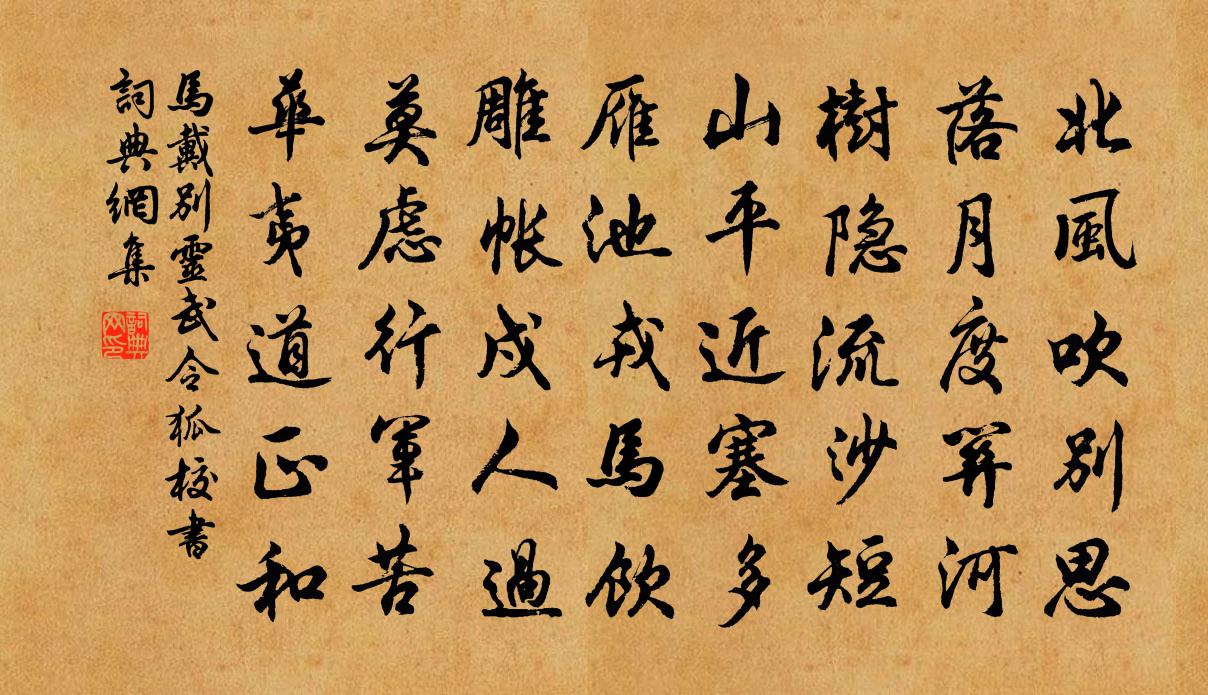 北風吹別思
落月度關河
樹隐流沙短
山平近塞多
雁池戎馬飲
雕帐戍人過
莫慮行軍苦
華夷道正和
馬戴別靈武令狐校書
詞典網集
詞典網印